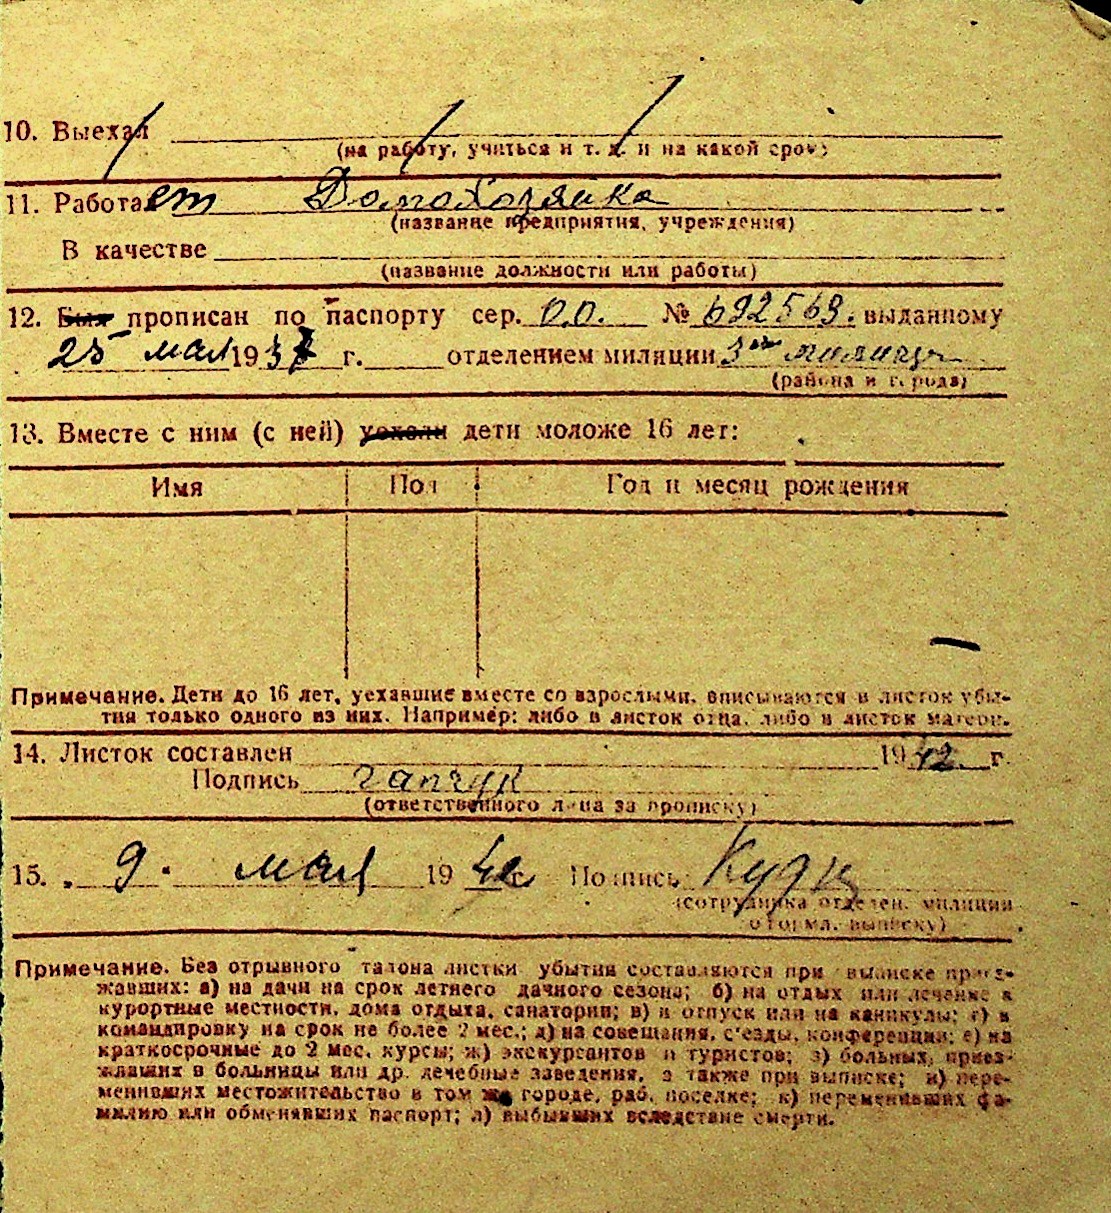 10. Выехал
(на работу, учиться и т. д. и на какой срок)
11. Работает Домохозяйка
(название предприятия, учреждения)
В качестве
(название должности или работы)
12. Был прописан по паспорту сер. О.О. № 692569. выданному
25 мая 1937 г. отделением милиции 3им милиц
(района и города)
13. Вместе с ним (с ней) уехали дети моложе 16 лет:
Имя Пол Год и месяц рождения
Примечание. Дети до 16 лет, уехавшие вместе со взрослыми, вписываются в листок убы-
тия только одного из них. Например: либо в листок отца, либо в листок матери.
14. Листок составлен 1942 г.
Подпись Гапчук
(ответственного лица за прописку)
15. 9. мая 1942 Подпись
(сотрудника отделен. милиции
оформл. выписку)
Примечание. Без отрывного талона листки убытия составляются при выписке приез-
жавших: а) на дачи на срок летнего дачного сезона; б) на отдых или лечение в
курортные местности, дома отдыха, санатории; в) в отпуск или на каникулы; г) в
командировку на срок не более 2 мес.; д) на совещания, с'езды, конференции; е) на
краткосрочные до 2 мес. курсы; ж) экскурсантов и туристов; з) больных, приез-
жавших в больницы или др. лечебные заведения, а также при выписке; и) пере-
менивших местожительство в том же городе, раб. поселке; к) переменивших фа-
милию или обменявших паспорт; л) выбывших вследствие смерти.